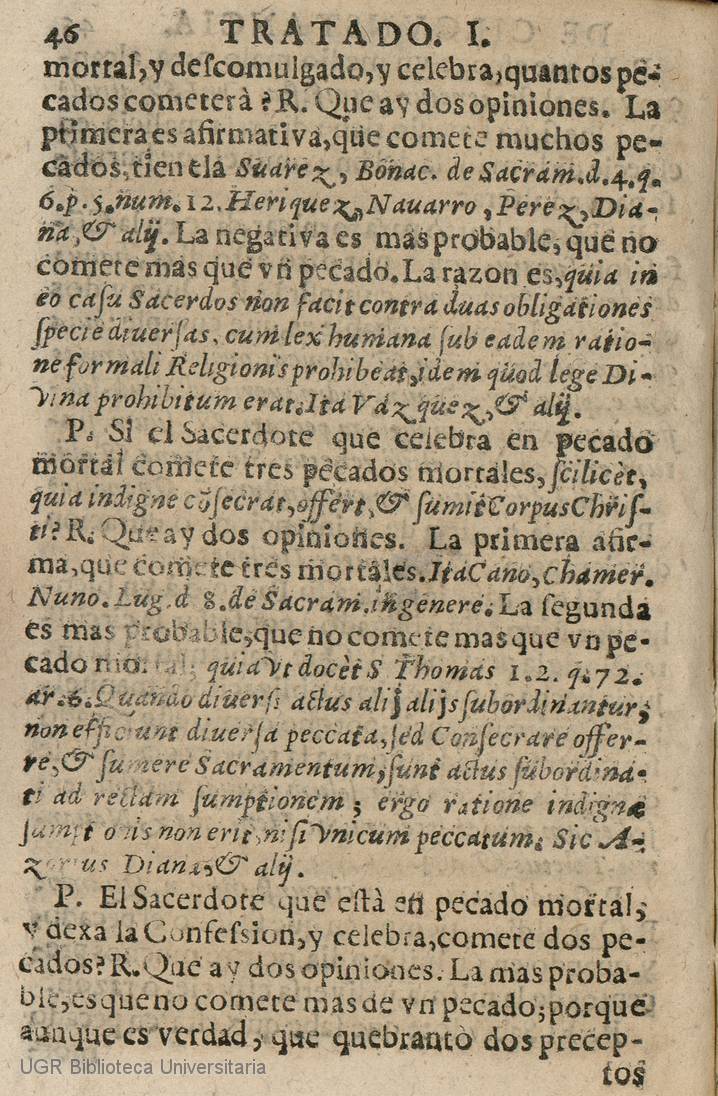 46 TRATADO. I.
mortal, y descomulgado, y celebra, quantos pe-
cados cometerà? R. Que ay dos opiniones. La
primera es afirmativa, que comete muchos pe-
cados, tienela Suarez, Bonac. de Sacram. d. 4. q.
6. p. 5. num. 12. Heriquez, Nauarro, Perez, Dia-
na, & alij. La negativa es mas probable, que no
comete mas que vn pecado. La razon es, quia in
eo casu Sacerdos non facit contra duas obligationes
specie diuersas, cum lex humana sub eadem ratio-
ne formali Religionis prohibeat, idem quod lege Di-
vina prohibitum erat. Ita Vazquez, & alij.
P. Si el Sacerdote que celebra en pecado
mortal comete tres pecados mortales, scilicèt,
quia indigne cõsecrat, offert, & sumit Corpus Chris-
ti? R. Que ay dos opiniones. La primera afir-
ma, que comete tres mortales. Ita Cano, Chamer.
Nuno. Lug. d 8. de Sacram. in genere. La segunda
es mas probable, que no comete mas que vn pe-
cado mortal; quia vt docèt S Thomas 1. 2. q. 72.
ar. 6. Quando diuersi actus alij alijs subordinantur,
non efficiunt diuersa peccata, sed Consecrare offer-
re, & sumere Sacramentum, sunt actus subordina-
ti ad rectam sumptionem; ergo ratione indignæ
sumptionis non erit, nisi vnicum peccatum. Sic A-
zorius Diana, & alij.
P. El Sacerdote que està en pecado mortal,
y dexa la Confession, y celebra, comete dos pe-
cados? R. Que ay dos opiniones. La mas proba-
ble, es que no comete mas de vn pecado; porque
aunque es verdad, que quebrantò dos precep-
tos
UGR Biblioteca Universitaria